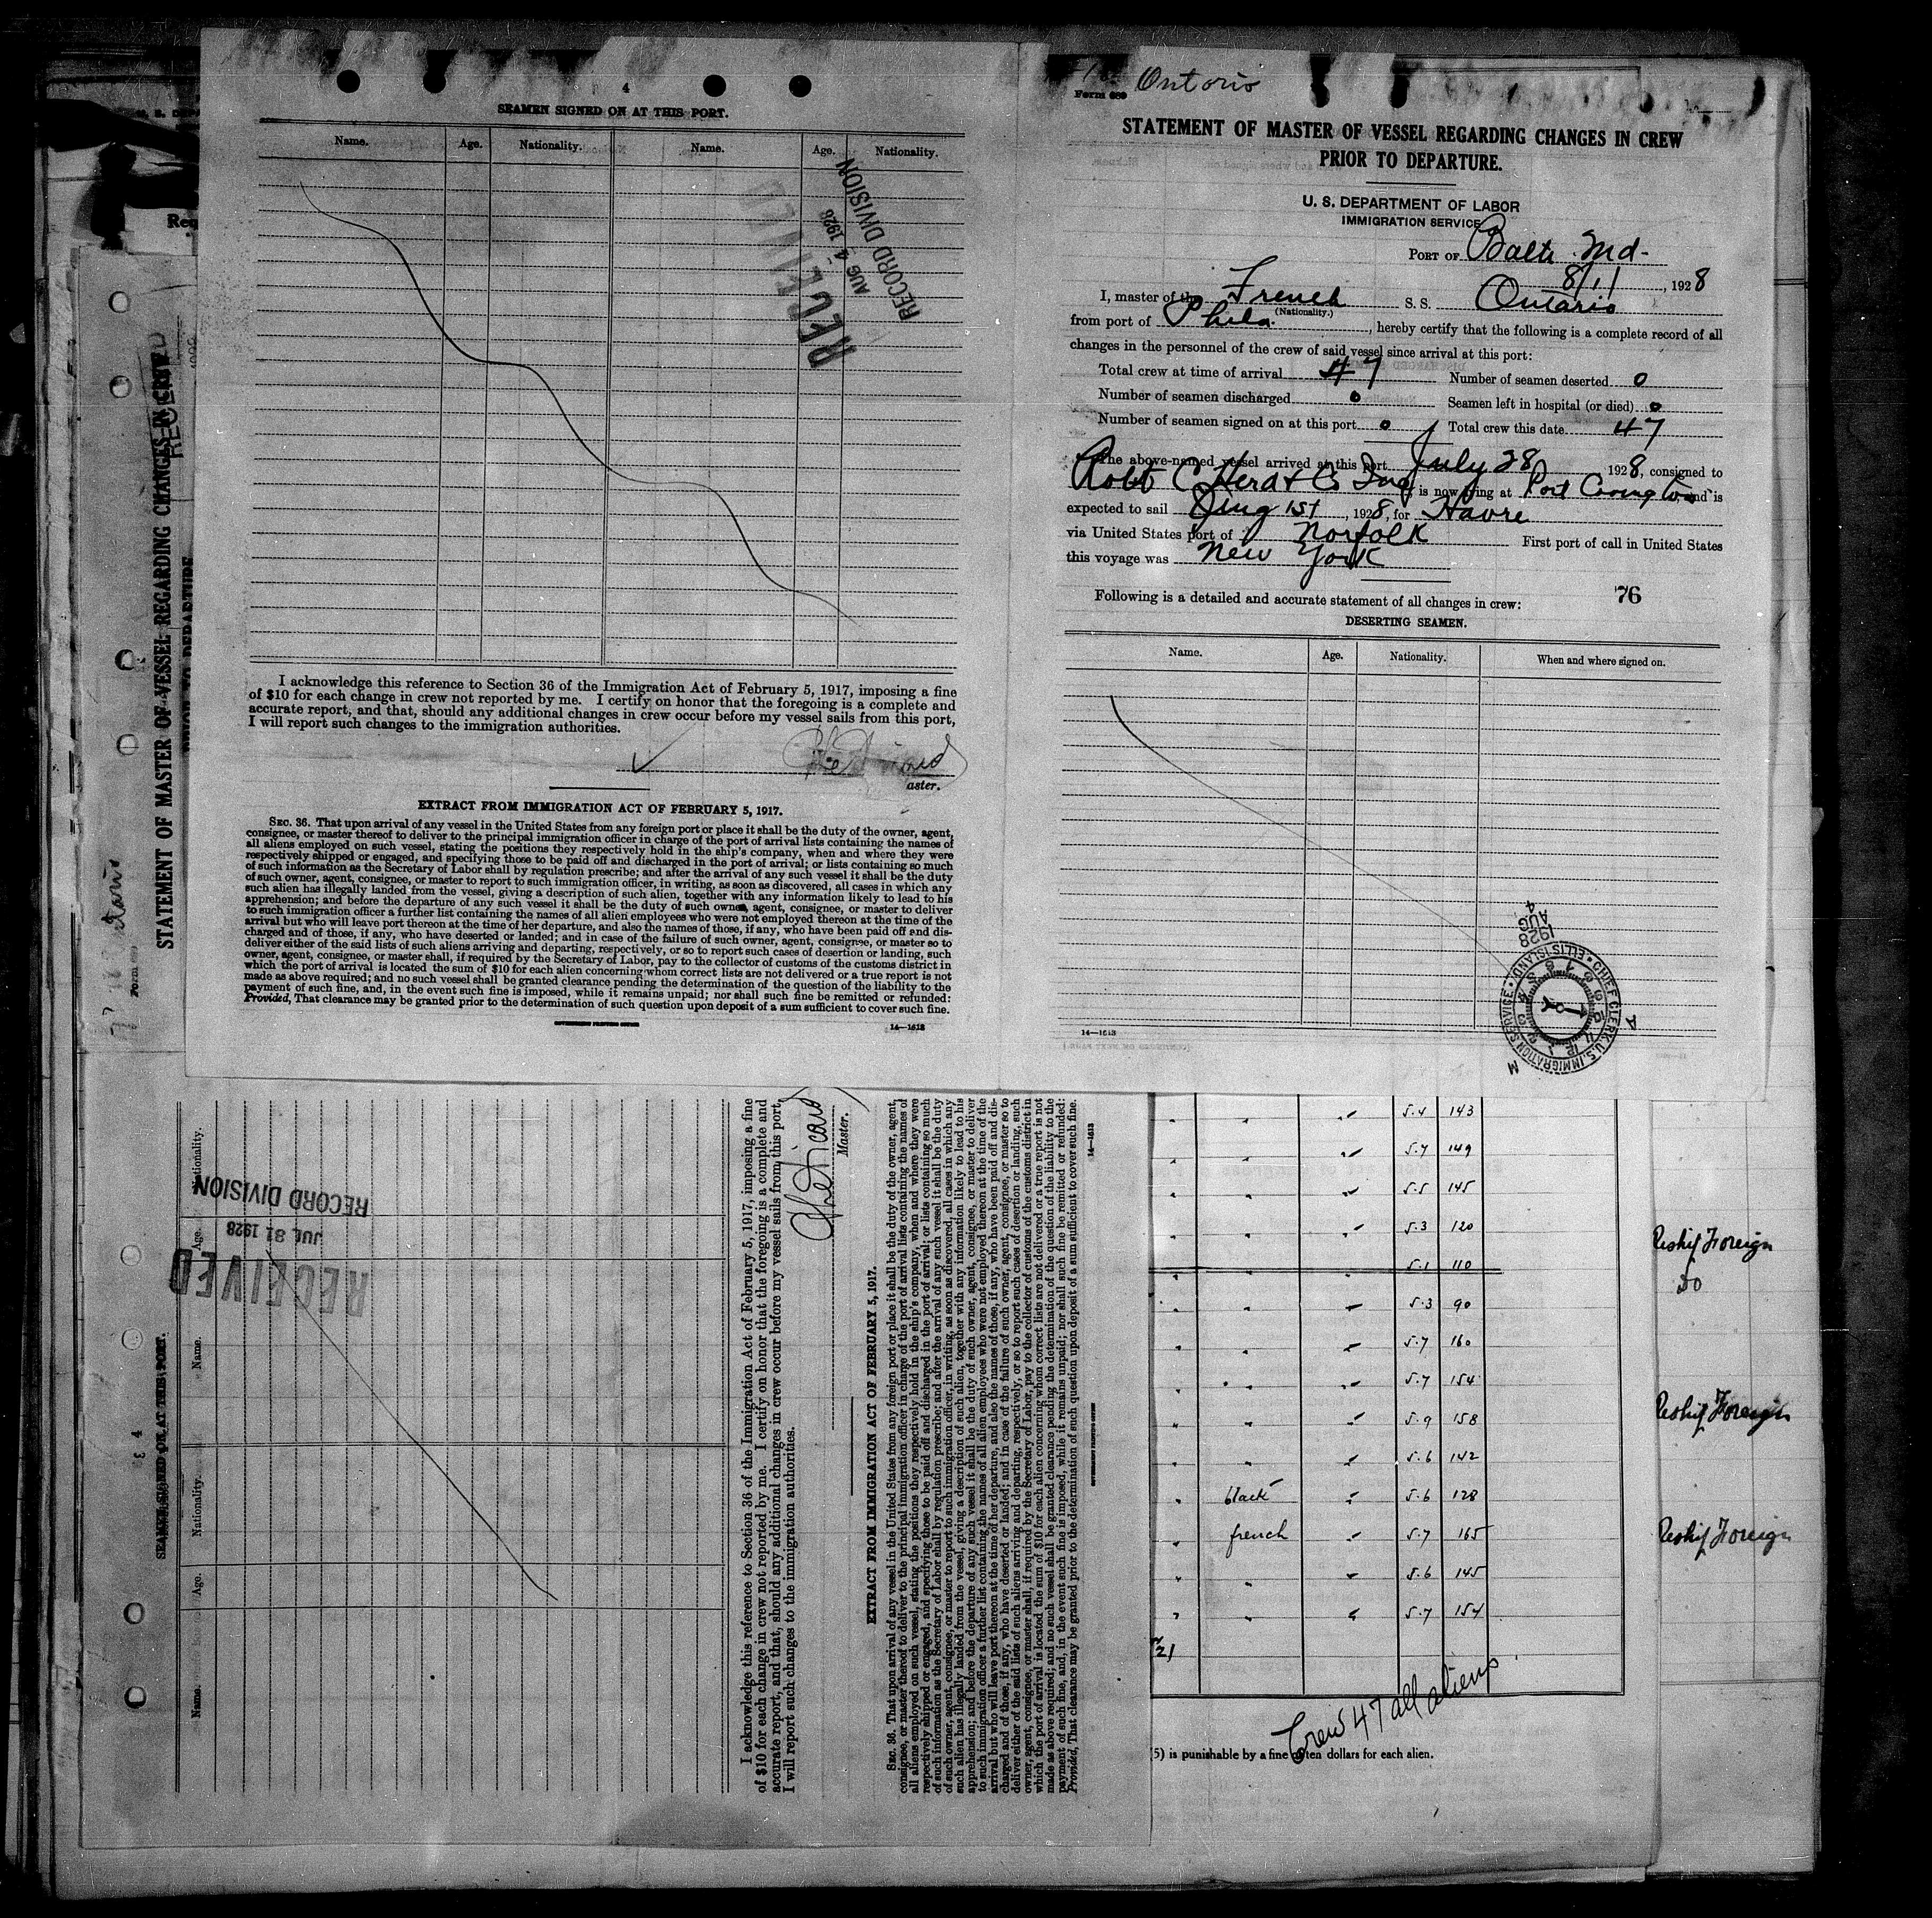 4
SEAMEN SIGNED ON AT THIS PORT.
Name. Age. Nationality. Name. Age. Nationality.
RECEIVED
AUG 4 1928
RECORD DIVISION
I acknowledge this reference to Section 36 of the Immigration Act of February 5, 1917, imposing a fine
of $10 for each change in crew not reported by me. I certify on honor that the foregoing is a complete and
accurate report, and that, should any additional changes in crew occur before my vessel sails from this port,
I will report such changes to the immigration authorities.
aster.
EXTRACT FROM IMMIGRATION ACT OF FEBRUARY 5, 1917.
SEC. 36. That upon arrival of any vessel in the United States from any foreign port or place it shall be the duty of the owner, agent,
consignee, or master thereof to deliver to the principal immigration officer in charge of the port of arrival lists containing the names of
all aliens employed on such vessel, stating the positions they respectively hold in the ship's company, when and where they were
respectively shipped or engaged, and specifying those to be paid off and discharged in the port of arrival; or lists containing so much
of such information as the Secretary of Labor shall by regulation prescribe; and after the arrival of any such vessel it shall be the duty
of such owner, agent, consignee, or master to report to such immigration officer, in writing, as soon as discovered, all cases in which any
such alien has illegally landed from the vessel, giving a description of such alien, together with any information likely to lead to his
apprehension; and before the departure of any such vessel it shall be the duty of such owner, agent, consignee, or master to deliver
to such immigration officer a further list containing the names of all alien employees who were not employed thereon at the time of the
arrival but who will leave port thereon at the time of her departure, and also the names of those, if any, who have been paid off and dis-
charged and of those, if any, who have deserted or landed; and in case of the failure of such owner, agent, consignee, or master so to
deliver either of the said lists of such aliens arriving and departing, respectively, or so to report such cases of desertion or landing, such
owner, agent, consignee, or master shall, if required by the Secretary of Labor, pay to the collector of customs of the customs district in
which the port of arrival is located the sum of $10 for each alien concerning whom correct lists are not delivered or a true report is not
made as above required; and no such vessel shall be granted clearance pending the determination of the question of the liability to the
payment of such fine, and, in the event such fine is imposed, while it remains unpaid; nor shall such fine be remitted or refunded:
Provided, That clearance may be granted prior to the determination of such question upon deposit of a sum sufficient to cover such fine.
GOVERNMENT PRINTING OFFICE 14—1613
Ontario
Form 689
STATEMENT OF MASTER OF VESSEL REGARDING CHANGES IN CREW
PRIOR TO DEPARTURE.
U. S. DEPARTMENT OF LABOR
IMMIGRATION SERVICE
PORT OF Balto Md-
8/1/, 1928
I, master of the French S. S. Ontario
(Nationality.)
from port of Phila., hereby certify that the following is a complete record of all
changes in the personnel of the crew of said vessel since arrival at this port:
Total crew at time of arrival 47 Number of seamen deserted 0
Number of seamen discharged 0 Seamen left in hospital (or died) 0
Number of seamen signed on at this port 0 Total crew this date 47
The above-named vessel arrived at this port July 28 1928, consigned to
Robt C Herd & Co Inc, is now lying at Port Covington and is
expected to sail Aug 1st, 1928, for Havre
via United States port of Norfolk First port of call in United States
this voyage was New York
76
Following is a detailed and accurate statement of all changes in crew:
DESERTING SEAMEN.
Name. Age. Nationality. When and where signed on.
14—1613
1928 AUG 4
CHIEF CLERK U.S. IMMIGRATION SERVICE • ELLIS ISLAND •
A M
STATEMENT OF MASTER OF VESSEL REGARDING CHANGES IN CREW
PRIOR TO DEPARTURE
Form 689
4
SEAMEN SIGNED ON AT THIS PORT.
Name. Age. Nationality. Name. Age. Nationality.
RECEIVED
JUL 31 1928
RECORD DIVISION
I acknowledge this reference to Section 36 of the Immigration Act of February 5, 1917, imposing a fine
of $10 for each change in crew not reported by me. I certify on honor that the foregoing is a complete and
accurate report, and that, should any additional changes in crew occur before my vessel sails from this port,
I will report such changes to the immigration authorities.
Master.
EXTRACT FROM IMMIGRATION ACT OF FEBRUARY 5, 1917.
SEC. 36. That upon arrival of any vessel in the United States from any foreign port or place it shall be the duty of the owner, agent,
consignee, or master thereof to deliver to the principal immigration officer in charge of the port of arrival lists containing the names of
all aliens employed on such vessel, stating the positions they respectively hold in the ship's company, when and where they were
respectively shipped or engaged, and specifying those to be paid off and discharged in the port of arrival; or lists containing so much
of such information as the Secretary of Labor shall by regulation prescribe; and after the arrival of any such vessel it shall be the duty
of such owner, agent, consignee, or master to report to such immigration officer, in writing, as soon as discovered, all cases in which any
such alien has illegally landed from the vessel, giving a description of such alien, together with any information likely to lead to his
apprehension; and before the departure of any such vessel it shall be the duty of such owner, agent, consignee, or master to deliver
to such immigration officer a further list containing the names of all alien employees who were not employed thereon at the time of the
arrival but who will leave port thereon at the time of her departure, and also the names of those, if any, who have been paid off and dis-
charged and of those, if any, who have deserted or landed; and in case of the failure of such owner, agent, consignee, or master so to
deliver either of the said lists of such aliens arriving and departing, respectively, or so to report such cases of desertion or landing, such
owner, agent, consignee, or master shall, if required by the Secretary of Labor, pay to the collector of customs of the customs district in
which the port of arrival is located the sum of $10 for each alien concerning whom correct lists are not delivered or a true report is not
made as above required; and no such vessel shall be granted clearance pending the determination of the question of the liability to the
payment of such fine, and, in the event such fine is imposed, while it remains unpaid; nor shall such fine be remitted or refunded:
Provided, That clearance may be granted prior to the determination of such question upon deposit of a sum sufficient to cover such fine.
14—1613
5.4 143
5.7 149
5.5 145
5.3 120 Reship Foreign
5.1 110 Do
5.3 90
5.7 160
5.7 154
5.9 158 Reship Foreign
5.6 142
black 5.6 128
french 5.7 165 Reship Foreign
5.6 145
5.7 154
21
Crew 47 all aliens
5) is punishable by a fine of ten dollars for each alien.